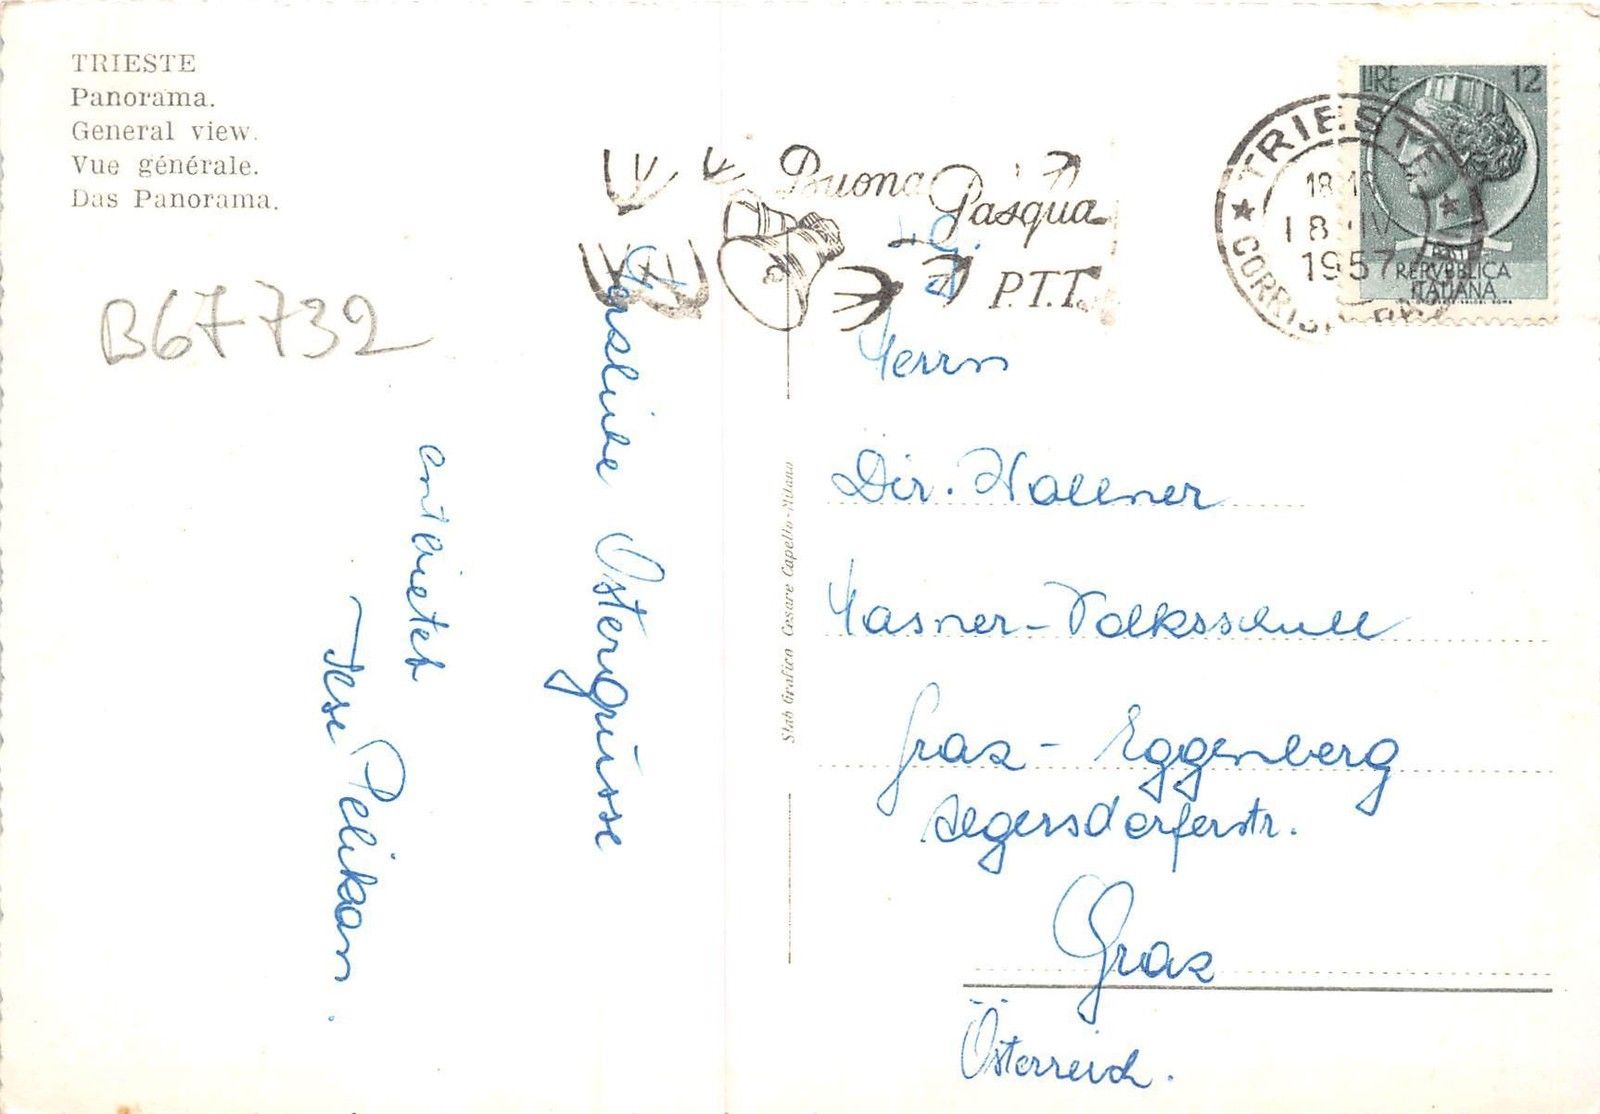 TRIESTE
Panorama.
General view.
Vue générale.
Das Panorama.
B67732
Buona Pasqua
P.T.T.
TRIESTE
18-19
18 IV
1957
LIRE 12
REPVBBLICA
ITALIANA
Herzliche Ostergrüsse
entbietet
Pelikan.
Stab Grafico Cesare Capello-Milano
Herrn
Dir. Wallner
Hasner-Volksschule
Graz - Eggenberg
Algersdorferstr.
Graz
Österreich.